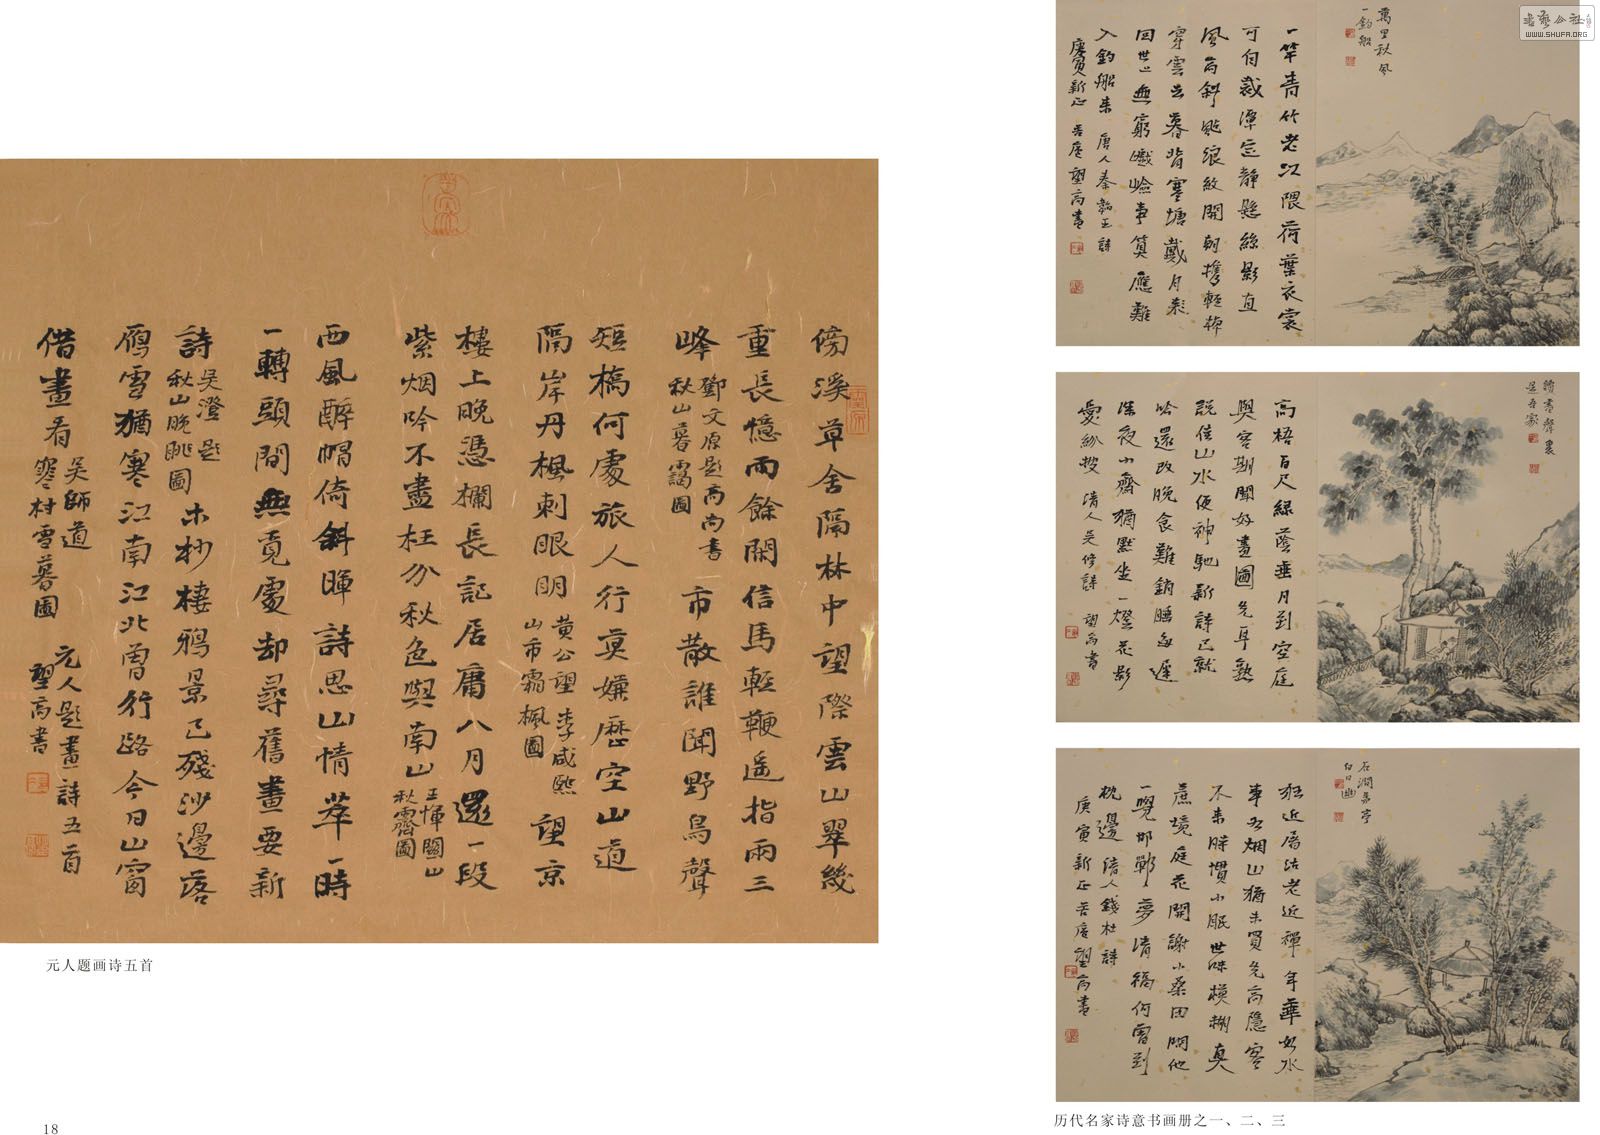 傍溪草舍隔林中望際雲山翠幾
重長憶雨餘閑信馬輕鞭遥指兩三
峰
鄧文原題高尚書
秋山暮靄圖
市散誰聞野鳥聲
短橋何處旅人行莫嫌歷空山道
隔岸丹楓刺眼明
黄公望 李咸熙
山市霜楓圖
望京
樓上晚憑欄長記居庸八月還一段
紫烟吟不盡枉分秋色與南山
王惲關山
秋霽圖
西風醉帽倚斜暉詩思山情萃一時
一轉頭間無覓處却尋舊畫要新
詩
吴澄題
秋山晚眺圖
木杪棲鴉景已殘沙邊落
鴈雪猶寒江南江北曾行路今日山窗
借畫看
吴師道
寒村雪暮圖
元人題畫詩五首
望高書
元人题画诗五首
18
萬里秋風
一釣船
一竿青竹老江隈荷葉衣裳
可自裁潭定静懸絲影直
風高斜颭浪紋開朝携輕棹
穿雲去暮背寒塘戴月來
回世上無窮嶮巇事算應難
入釣船來 唐人秦韜玉詩
庚寅新正 望高書
讀書聲裏
是吾家
高梧百尺緑蔭垂月到空庭
與客期聞好畫圖先耳熱
説佳山水便神馳新詩已就
吟還改晚食難銷睡每遲
深夜小齋猶默坐一燈花影
亂紛披 清人吴修詩 望高書
石澗茅亭
白日幽
狂近屠沽老近禪年華如水
事如烟山猶未買先高隱客
不來時慣小眠世味模糊真
蔗境庭花開謝小桑田閑他
一覺邯鄲夢清福何曾到
枕邊 清人錢杜詩
庚寅新正 望高書
历代名家诗意书画册之一、二、三
書藝公社
WWW.SHUFA.ORG